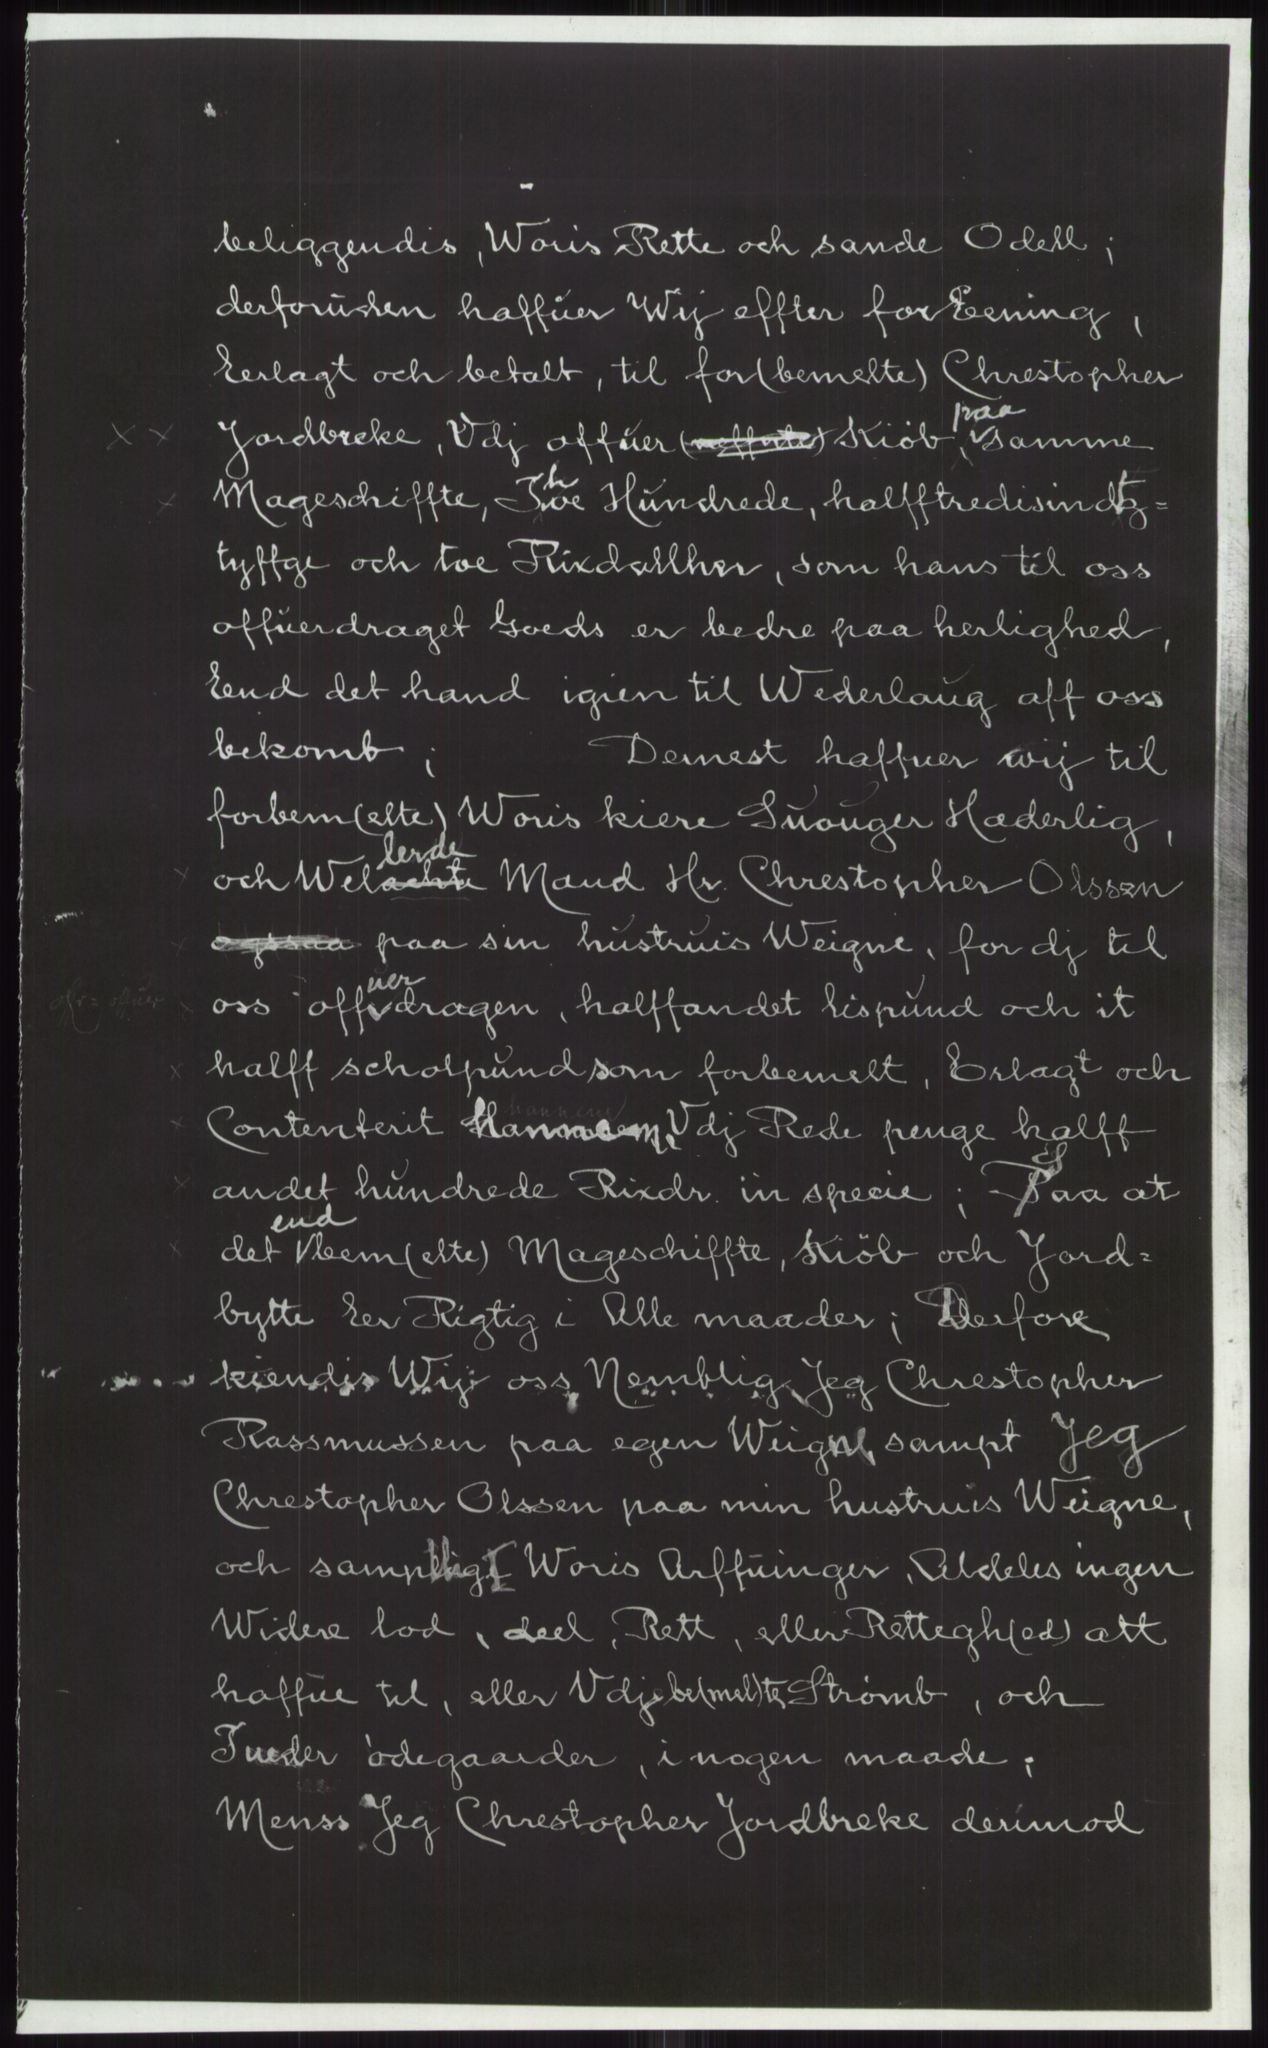 beliggendis, Woris Rette och sande Odell;
derforuden haffuer Wij effter forEening,
Eerlagt och betalt, til for(bemelte) Chrestopher
Jordbreke, Vdj offuer Kiöb, paa samme
Mageschiffte, Thoe Hundrede, halfftredisindtz=
tyffge och toe Rixdallher, som hans til oss
offuerdraget Goeds er bedre paa herlighed,
Eend det hand igien til Wederlaug aff oss
bekomb; Dernest haffuer wij til
forbem(elte) Woris kiere Suouger Hæderlig,
och Wellerde Mand Hr. Chrestopher Olssen
paa sin hustruis Weigne, for dj til
ofr = offuer
oss offuerdragen, halffandet lispund och it
halff scholpund som forbemelt, Erlagt och
Contenterit hannem, Vdj Rede penge halff
andet hundrede Rixdr. in specie; Saa at
det end bem(elte) Mageschiffte, Kiöb och Jord=
bytte Eer Rigtig i Alle maader; Derfore
kiendis Wij oss Nemblig Jeg Chrestopher
Rassmussen paa egen Weigne sampt Jeg
Chrestopher Olssen paa min hustruis Weigne,
och samptlige Woris Arffuinger, Aldeles ingen
Widere lod, deel, Rett, eller Rettegh(ed) att
haffue til, eller Vdj be(mel)te Strømb, och
Tuender ödegaarder, i nogen maade;
Menss Jeg Chrestopher Jordbreke derimod